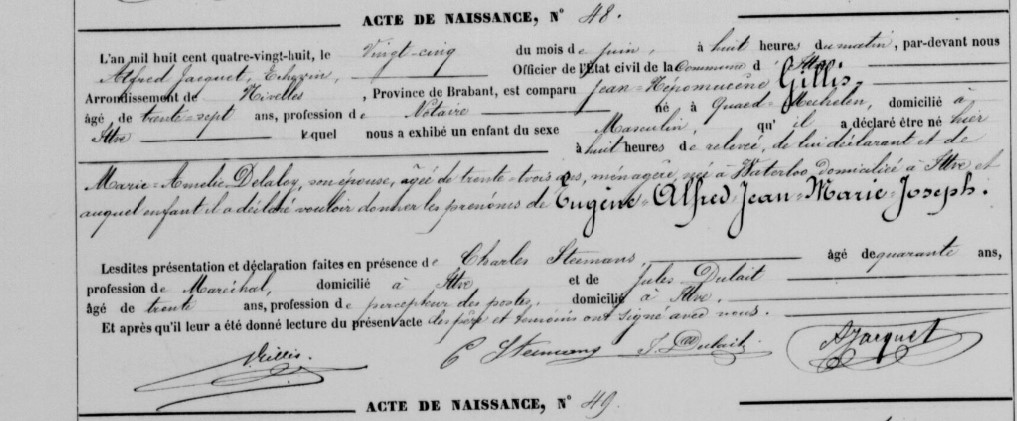 ACTE DE NAISSANCE, N° 48.
L'an mil huit cent quatre-vingt-huit, le Vingt-cinq du mois de juin, à huit heures du matin, par-devant nous
Alfred Jacquet, Echevin, Officier de l'Etat civil de la Commune d'Ittre
Arrondissement de Nivelles, Province de Brabant, est comparu Jean-Népomucène Gillis,
âgé de trente-sept ans, profession de Notaire né à Quaed-Mechelen, domicilié à
Ittre lequel nous a exhibé un enfant du sexe Masculin, qu'il a déclaré être né hier
à huit heures de relevée, de lui déclarant et de
Marie-Amelie Delaloy, son épouse, agée de trente-trois ans, ménagère, née à Waterloo, domiciliée à Ittre et
auquel enfant il a déclaré vouloir donner les prénoms de Eugène-Alfred-Jean-Marie-Joseph.
Lesdites présentation et déclaration faites en présence de Charles Stumans, âgé de quarante ans,
profession de Maréchal, domicilié à Ittre et de Jules Dulait
âgé de trente ans, profession de percepteur des postes, domicilié à Ittre,
Et après qu'il leur a été donné lecture du présent acte les père et témoins ont signé avec nous.
Gillis. C J. Dulait AJacquet
ACTE DE NAISSANCE, N° 49.